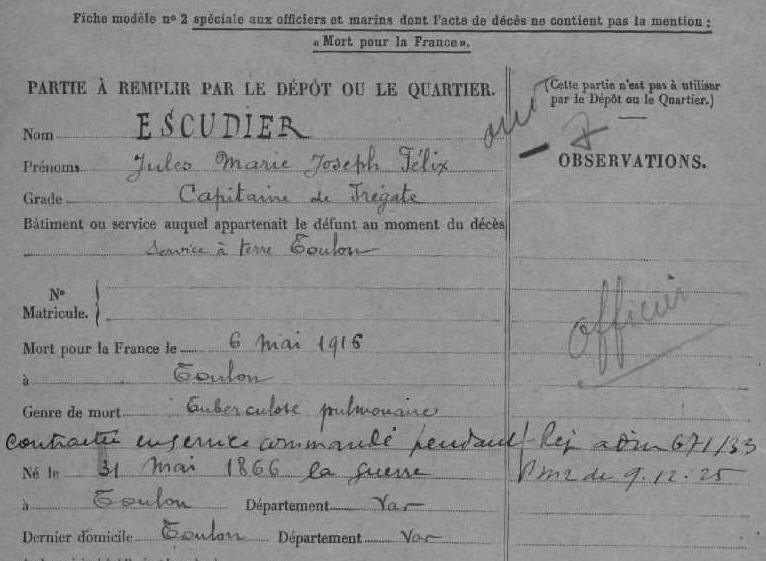 Fiche modèle nº 2 spéciale aux officiers et marins dont l'acte de décès ne contient pas la mention :
« Mort pour la France ».
PARTIE À REMPLIR PAR LE DÉPÔT OU LE QUARTIER.
(Cette partie n'est pas à utiliser
par le Dépôt ou le Quartier.)
oui
OBSERVATIONS.
Nom ESCUDIER
Prénoms Jules Marie Joseph Félix
Grade Capitaine de Frégate
Bâtiment ou service auquel appartenait le défunt au moment du décès
Service à terre Toulon
Nº
Matricule.
Officier
Mort pour la France le 6 mai 1916
à Toulon
Genre de mort Tuberculose pulmonaire
contractée en service commandé pendant
671/33
Né le 31 mai 1866 la guerre
de 9.12.25
à Toulon Département Var
Dernier domicile Toulon Département Var